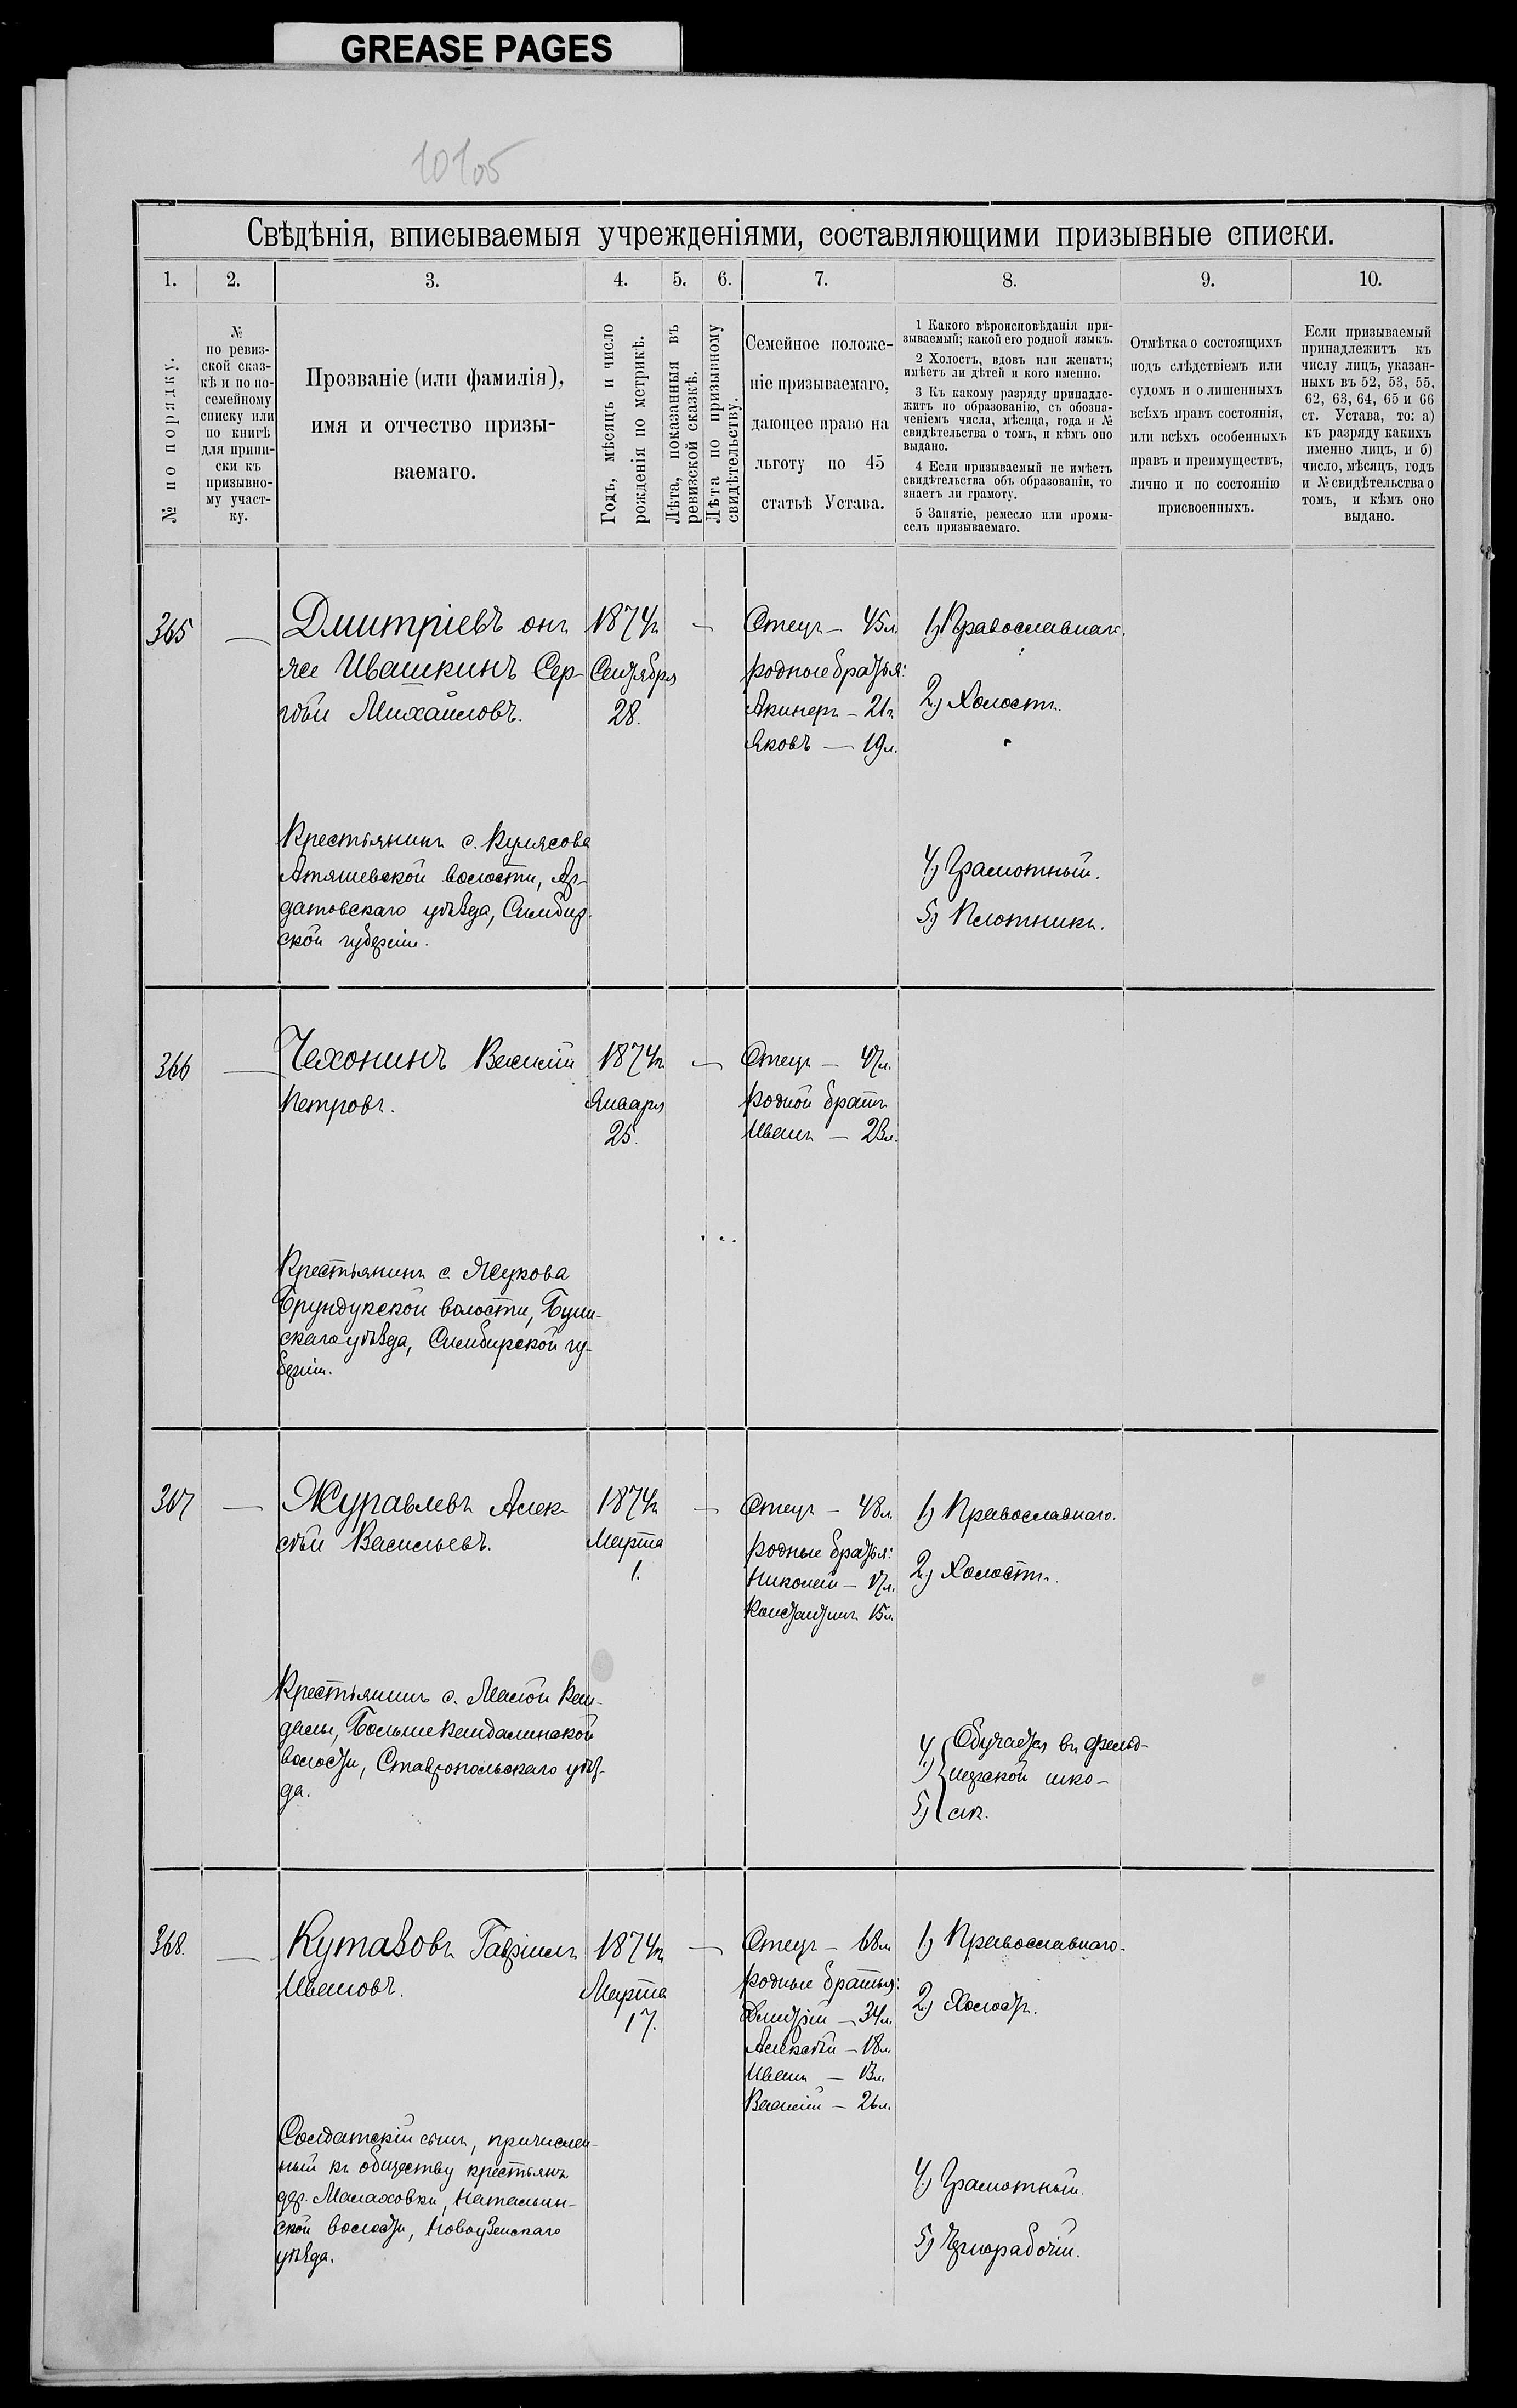 GREASE PAGES
10105
Свѣдѣнія, вписываемыя учрежденіями, составляющими призывные списки.
1. 2. 3. 4. 5. 6. 7. 8. 9. 10.
№ по порядку.
№
по ревиз-
ской сказ-
кѣ и по по-
семейному
списку или
по книгѣ
для припи-
ски къ
призывно-
му участ-
ку.
Прозваніе (или фамилія),
имя и отчество призы-
ваемаго.
Годъ, мѣсяцъ и число
рожденія по метрикѣ.
Лѣта, показанныя въ
ревизской сказкѣ.
Лѣта по призывному
свидѣтельству.
Семейное положе-
ніе призываемаго,
дающее право на
льготу по 45
статьѣ Устава.
1 Какого вѣроисповѣданія при-
зываемый; какой его родной языкъ.
2 Холостъ, вдовъ или женатъ;
имѣетъ ли дѣтей и кого именно.
3 Къ какому разряду принадле-
житъ по образованію, съ обозна-
ченіемъ числа, мѣсяца, года и №
свидѣтельства о томъ, и кѣмъ оно
выдано.
4 Если призываемый не имѣетъ
свидѣтельства объ образованіи, то
знаетъ ли грамоту.
5 Занятіе, ремесло или промы-
селъ призываемаго.
Отмѣтка о состоящихъ
подъ слѣдствіемъ или
судомъ и о лишенныхъ
всѣхъ правъ состоянія,
или всѣхъ особенныхъ
правъ и преимуществъ,
лично и по состоянію
присвоенныхъ.
Если призываемый
принадлежитъ къ
числу лицъ, указан-
ныхъ въ 52, 53, 55,
62, 63, 64, 65 и 66
ст. Устава, то: а)
къ разряду какихъ
именно лицъ, и б)
число, мѣсяцъ, годъ
и № свидѣтельства о
томъ, и кѣмъ оно
выдано.
365 —
Дмитріевъ онъ
же Ивашкинъ Сер-
гѣй Михайловъ.
Крестьянинъ с. Кулясова
Атяшевской волости, Ар-
датовскаго уѣзда, Симбир-
ской губерніи.
1874г.
Сентября
28.
—
Отецъ — 45л.
родные братья:
— 21г.
Яковъ — 19л.
1) Православнаго.
2) Холостъ.
4) Грамотный.
5) Плотникъ.
366 —
Чахонинъ Василій
Петровъ.
Крестьянинъ с. Жукова
Брундукской волости, Буин-
скаго уѣзда, Симбирской гу-
берніи.
1874г.
Января
25.
—
Отецъ — 47л.
родной братъ
Иванъ — 23л.
367 —
Журавлевъ Алек-
сѣй Васильевъ.
Крестьянинъ с. Малой Кан-
далы, Большекандалинской
волости, Ставропольскаго уѣз-
да.
1874г.
Марта
1.
—
Отецъ — 48л.
родные братья:
Николай — 17л.
Константинъ 15л.
1) Православнаго.
2) Холостъ.
4) Обучается въ фельд-
шерской шко-
5) лѣ.
368. —
Кутазовъ Гавріилъ
Ивановъ.
Солдатскій сынъ, причислен-
ный къ обществу крестьянъ
дер. Малаховки, Натальин-
ской волости, Новоузенскаго
уѣзда.
1874г.
Марта
17.
—
Отецъ — 68л.
родные братья:
Дмитрій — 34л.
Алексѣй — 18л.
Иванъ — 13л.
Василій — 26л.
1) Православнаго.
2) Холостъ.
4) Грамотный.
5) Чернорабочій.